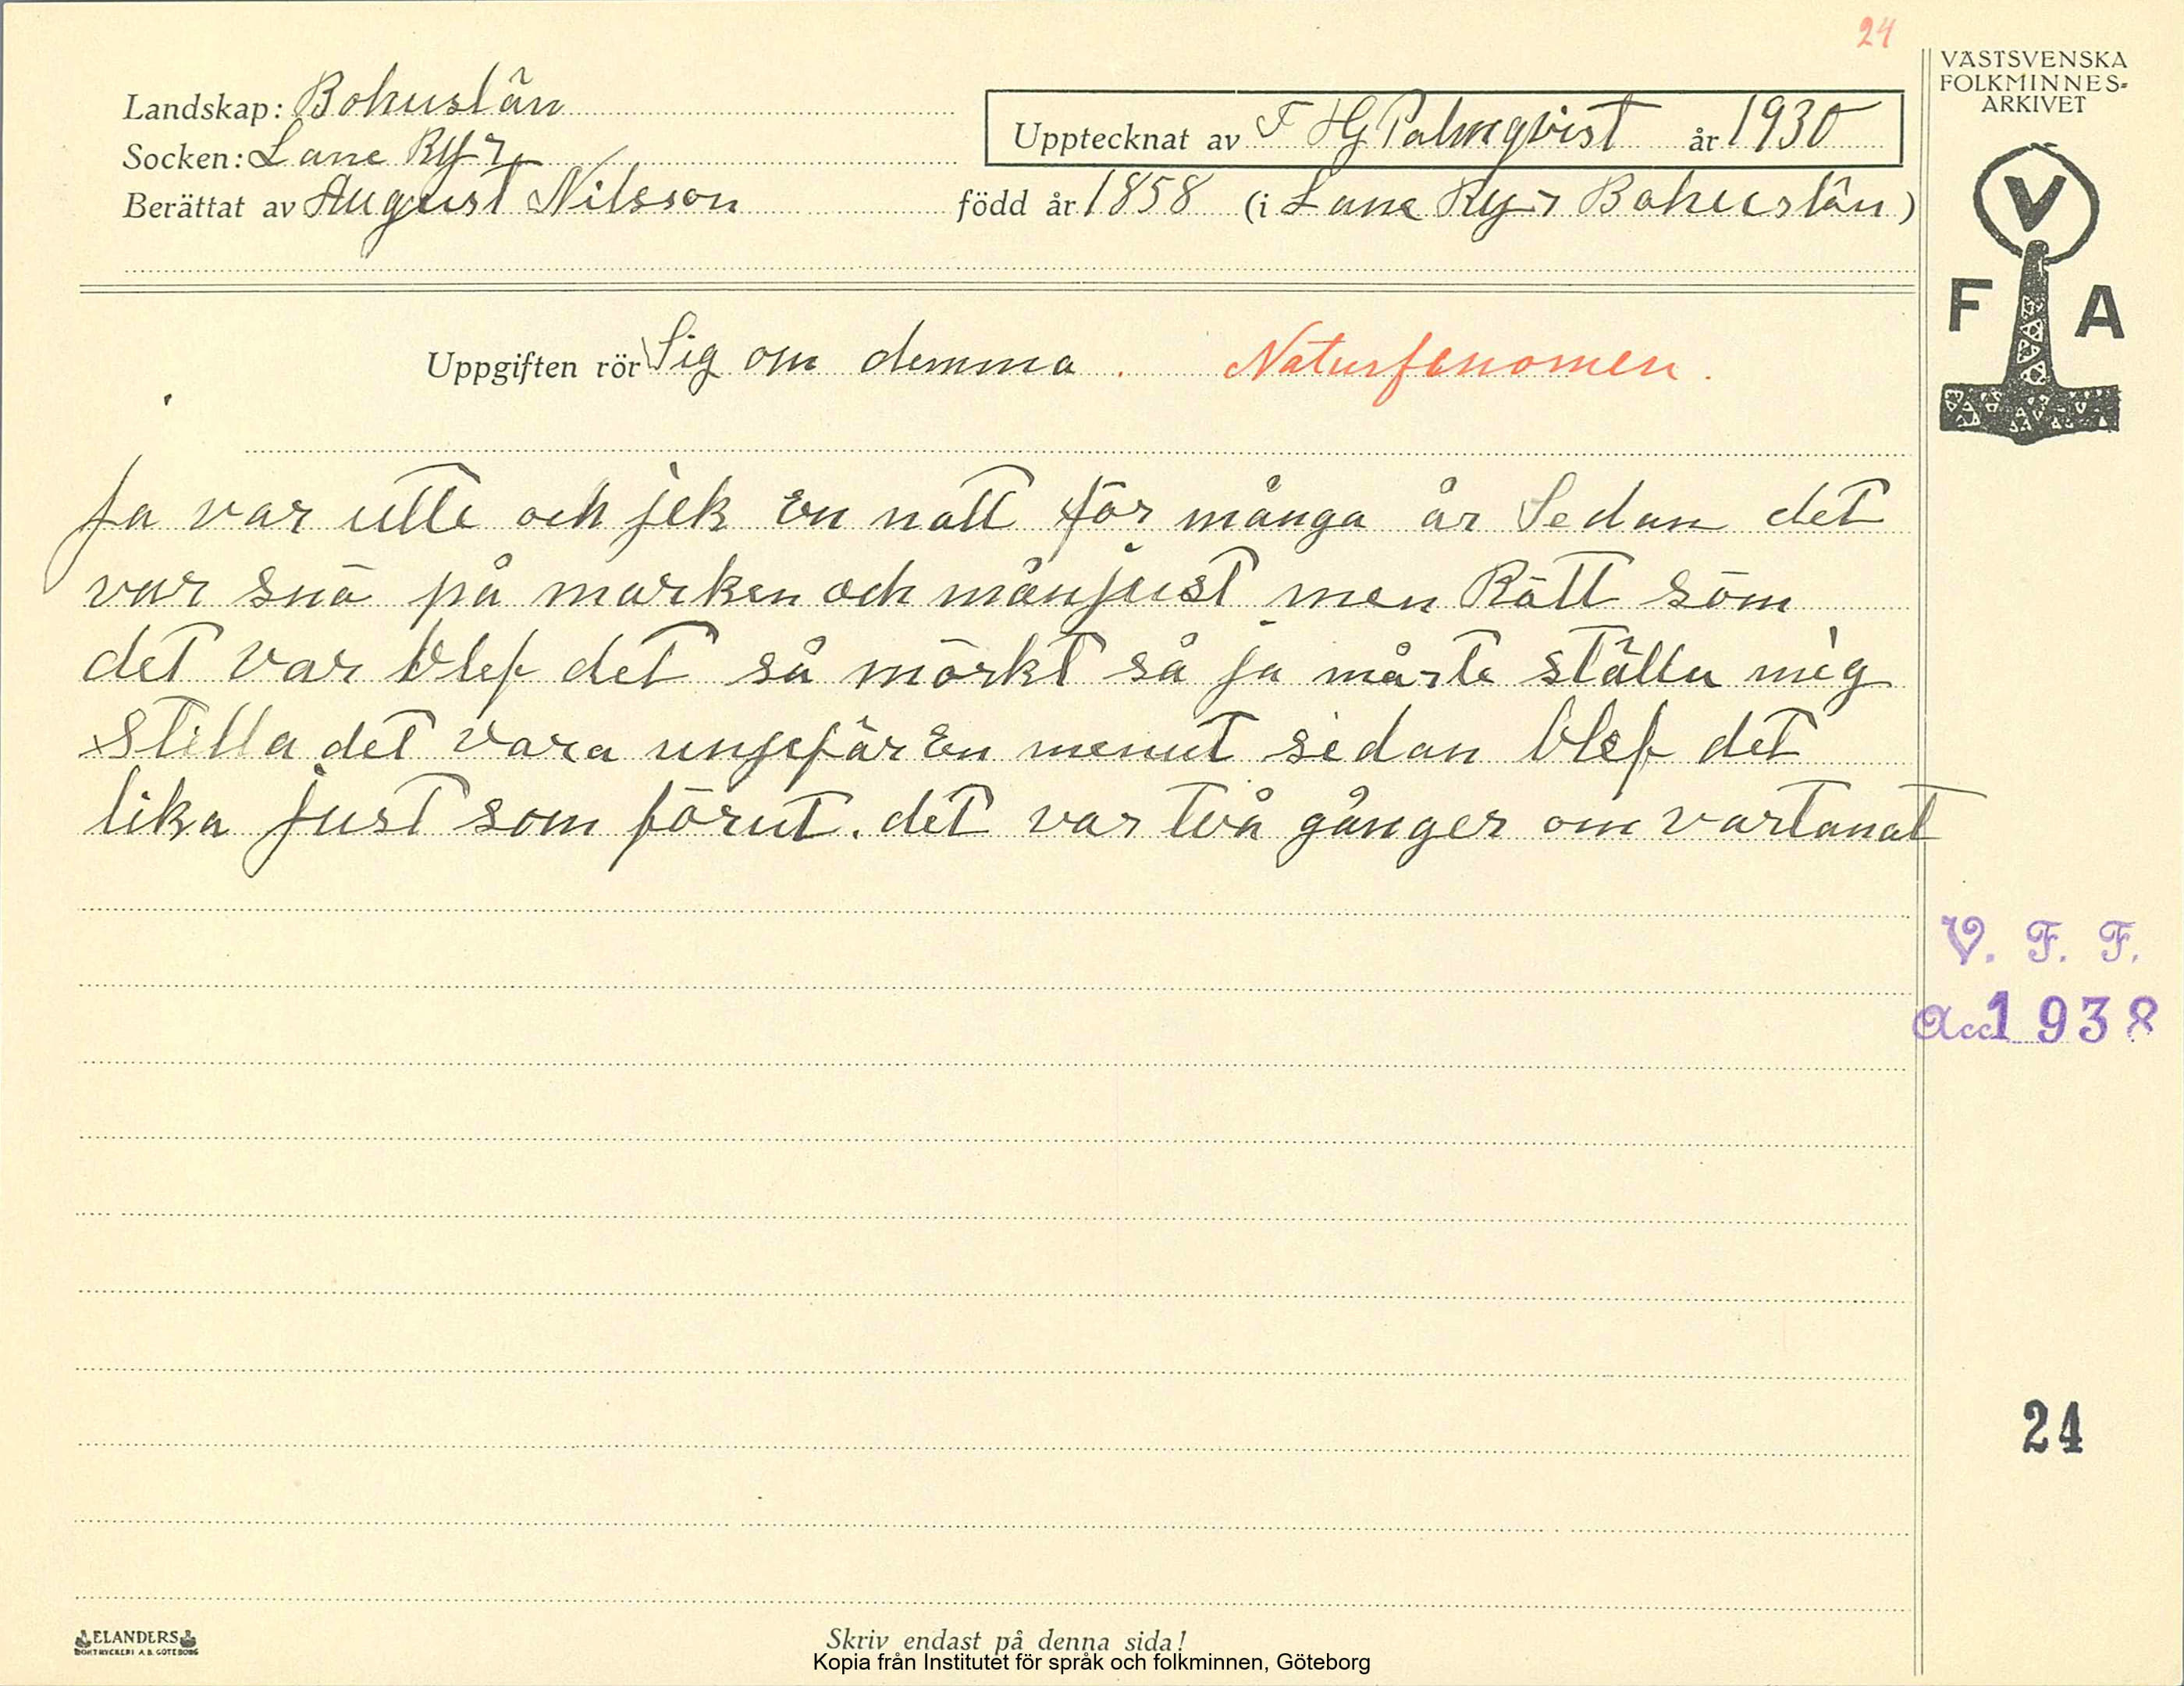 24
VÄSTSVENSKA
FOLKMINNES-
ARKIVET
Landskap: Bohuslän
Upptecknat av F HG Palmqvist år 1930
Socken: Lane Ryr
Berättat av August Nilsson född år 1858 (i Lane Ryr Bohuslän)
V
F A
Uppgiften rör Sig om demma. Naturfenomen.
Ja var utte och jek En natt för många år Sedan det
var snö på marken och månjust men Rätt som
det var blef det så mörkt så ja måste ställa mig
Stilla det vara unjefär En menut sedan blef det
lika just som förut. det var två gånger om vartanat
V. F. F.
Acc 1938
24
ELANDERS
BOKTRYCKERI A.B. GÖTEBORG
Skriv endast på denna sida!
Kopia från Institutet för språk och folkminnen, Göteborg